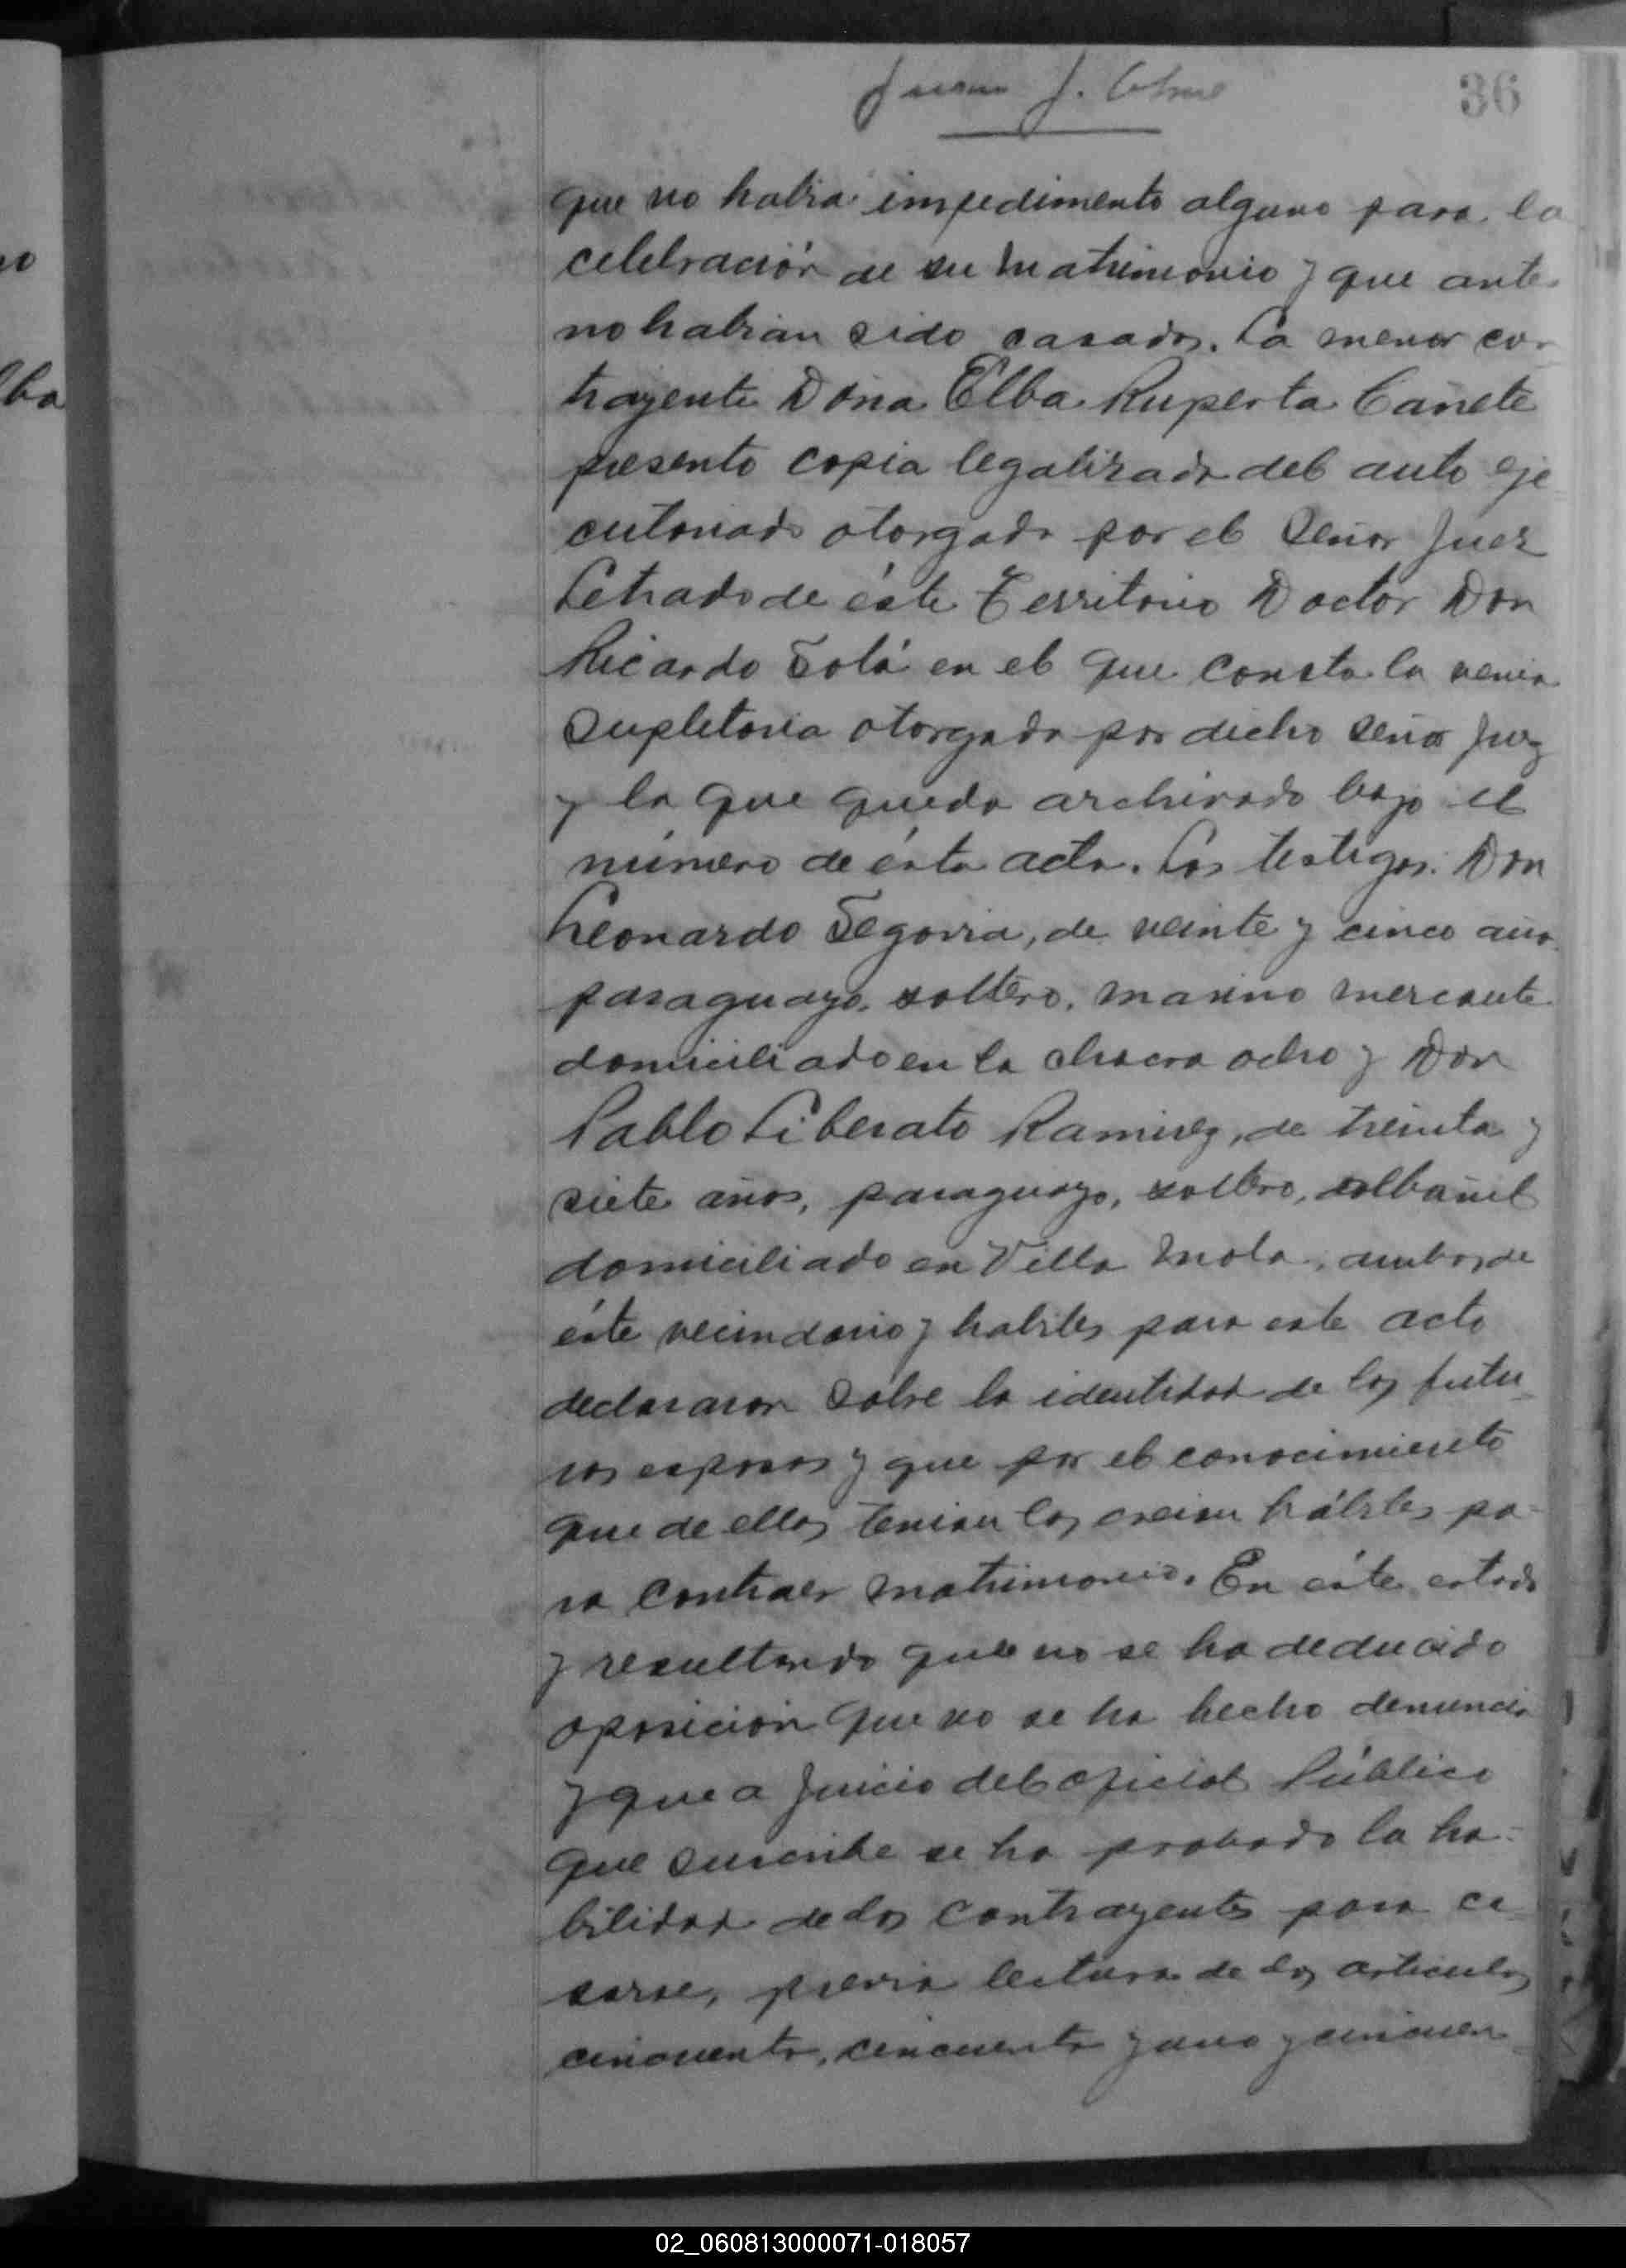 Juan J.
36
que no había impedimento alguno para la
celebración de su matrimonio y que antes
no habian sido casados. La menor con-
trayente Doña Elba Ruperta Cañete
presento copia legalizada del auto eje
cutoriado otorgado por el Señor Juez
Letrado de éste Territorio Doctor Don
Ricardo Solá en el que consta la venia
supletoria otorgada por dicho señor Juez
y la que queda archivado bajo el
número de ésta acta. Los testigos: Don
Leonardo Segovia, de veinte y cinco años
paraguayo, soltero, marino mercante
domiciliado en la chacra ocho y Don
Pablo Liberato Ramirez, de treinta y
siete años, paraguayo, soltero, albañil
domiciliado en Villa Mola, ambos de
éste vecindario y habiles para este acto
declararon sobre la identidad de los futu
ros esposos y que por el conocimiento
que de ellos tenian los creian hábiles pa-
ra contraer matrimonio. En éste estado
y resultando que no se ha deducido
oposición que no se ha hecho denuncia
y que a juicio del oficial Público
que suscribe se ha probado la ha-
bilidad de los contrayentes para ca
sarse, previa lectura de los articulos
cincuenta, cincuenta y uno y cincuen
no
lba
02_060813000071-018057